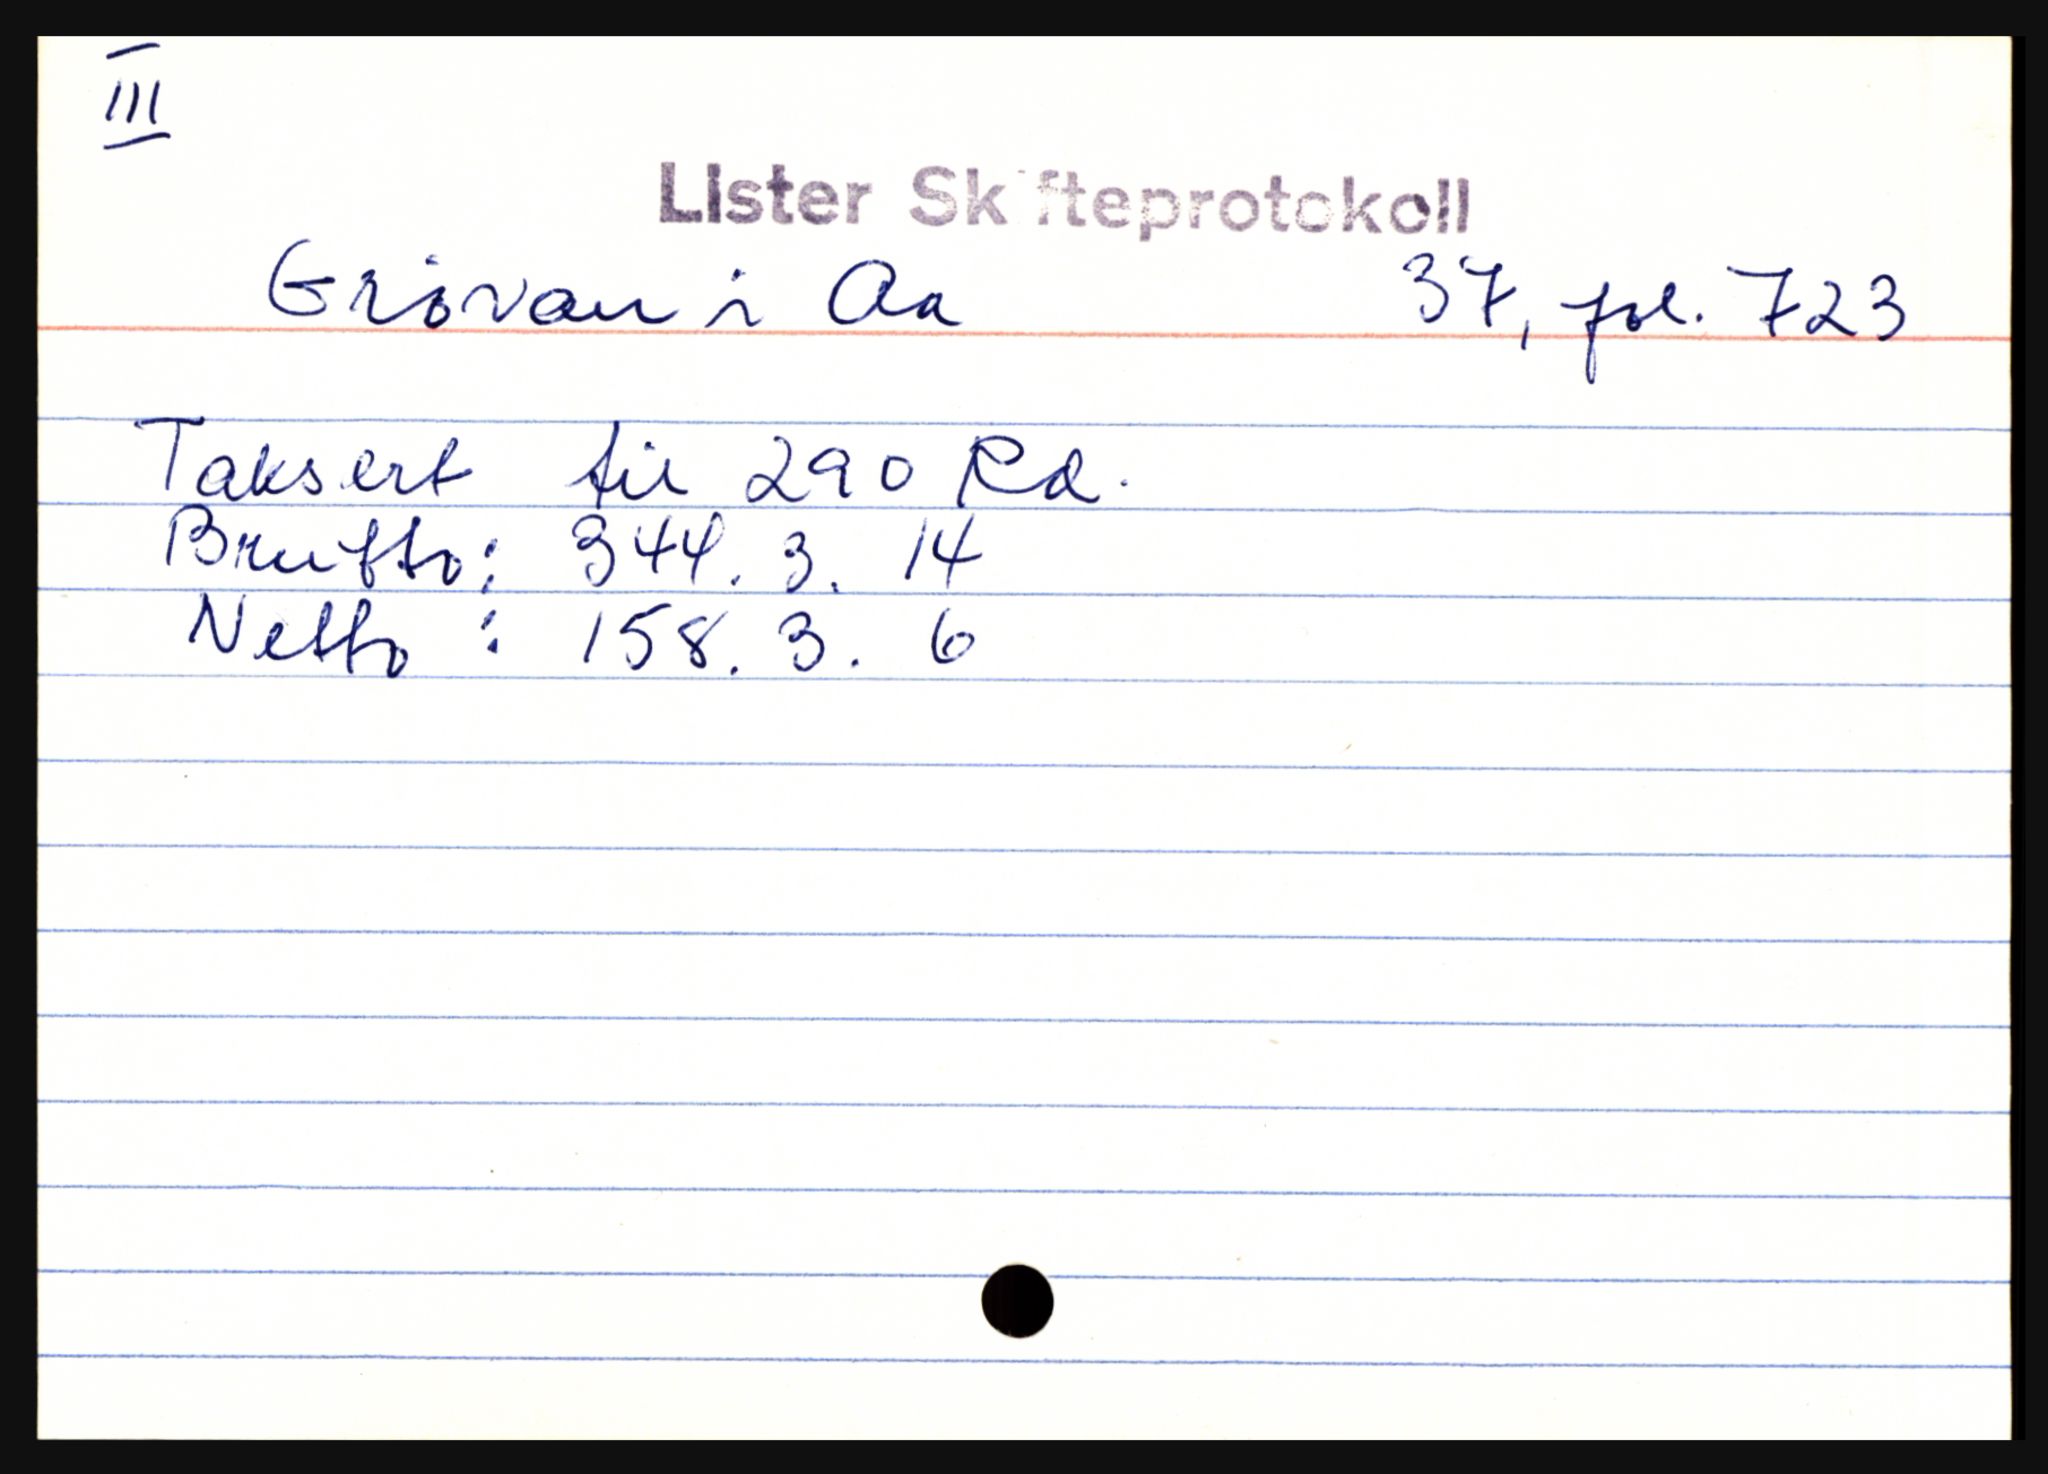 III
Lister Skifteprotokoll
Grøvan i Aa 37, fol. 723
Taksert til 290 Rd.
Brutto: 344. 3. 14
Netto : 158. 3. 6